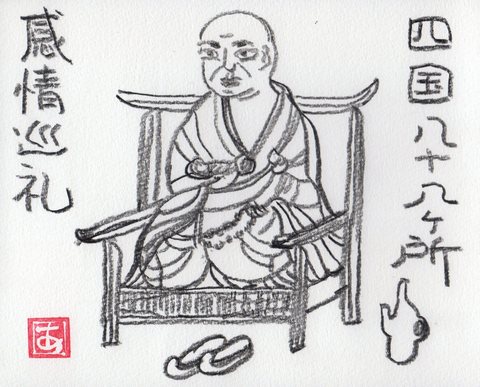 四国八十八ヶ所
感情巡礼
あ